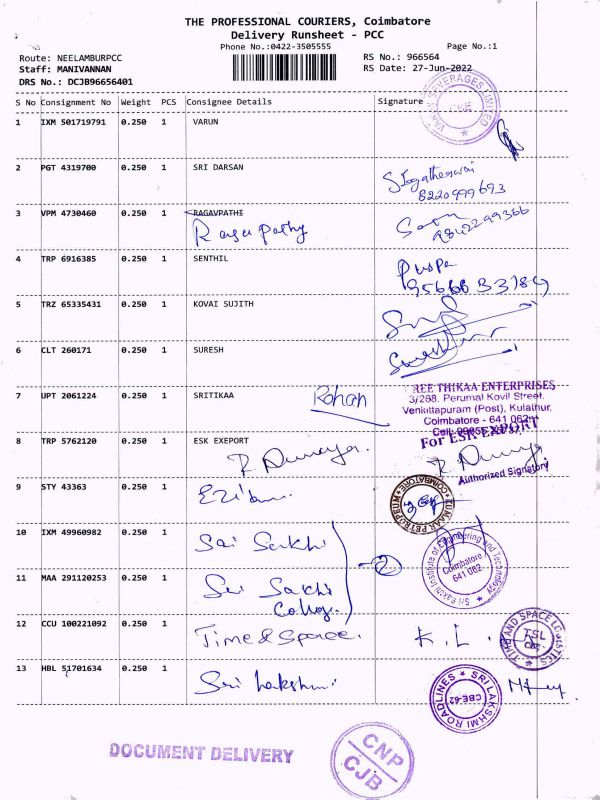 THE PROFESSIONAL COURIERS, Coimbatore
Delivery Runsheet - PCC
Phone No.:0422-3505555 Page No.:1
Route: NEELAMBURPCC RS No.: 966564
Staff: MANIVANNAN RS Date: 27-Jun-2022
DRS No.: DCJB96656401
S No Consignment No Weight PCS Consignee Details Signature
VARUN BEVERAGES LIMITED
CBE
1 IXM 501719791 0.250 1 VARUN
2 PGT 4319700 0.250 1 SRI DARSAN
8220499693
3 VPM 4730460 0.250 1 RAGAVPATHI
Ragapathy
9842299366
4 TRP 6916385 0.250 1 SENTHIL
Puspa
9566633184
5 TRZ 65335431 0.250 1 KOVAI SUJITH
6 CLT 260171 0.250 1 SURESH
7 UPT 2061224 0.250 1 SRITIKAA Rohan
REE THIKAA ENTERPRISES
3/268. Perumal Kovil Street.
Venkittapuram (Post), Kulathur,
Coimbatore - 641 062
8 TRP 5762120 0.250 1 ESK EXEPORT
For ESK EXPORT
Authorized Signatory
9 STY 43363 0.250 1
KUMARAN PETROPREUM
COIMBATORE
10 IXM 49960982 0.250 1 Sai Sakthi
2
Sri Sakthi Institute of Engineering and Technology
Coimbatore
641 062
11 MAA 291120253 0.250 1 Sri Sakthi
College
12 CCU 100221092 0.250 1 Time & Space. K. L.
TIME AND SPACE LOGISTICS
TSL
CBE
13 HBL 51701634 0.250 1 Sri Lakshmi
SRI LAKSHMI ROADLINES
CBE-62
DOCUMENT DELIVERY
CNP
CJB